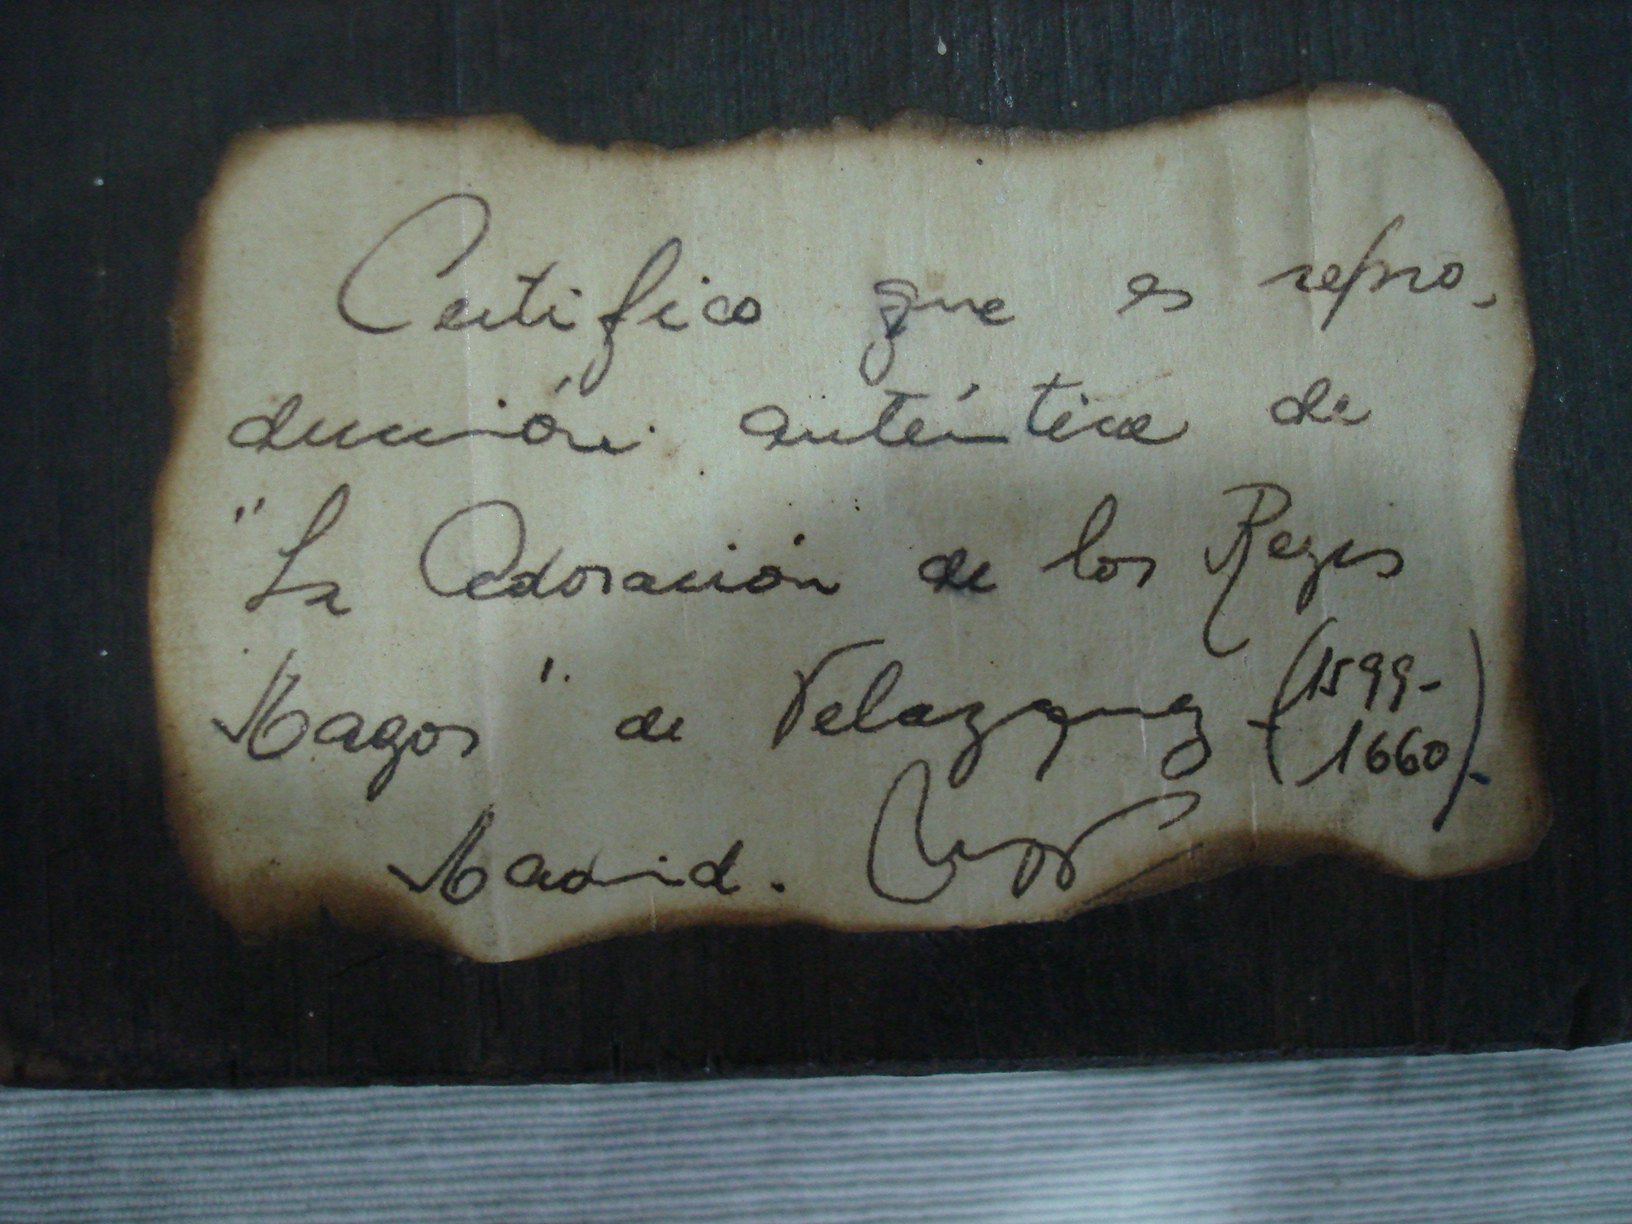 Certifico que es repro-
ducción auténtica de
"La Adoración de los Reyes
Magos". de Velazquez - (1599-
1660)-
Madrid.